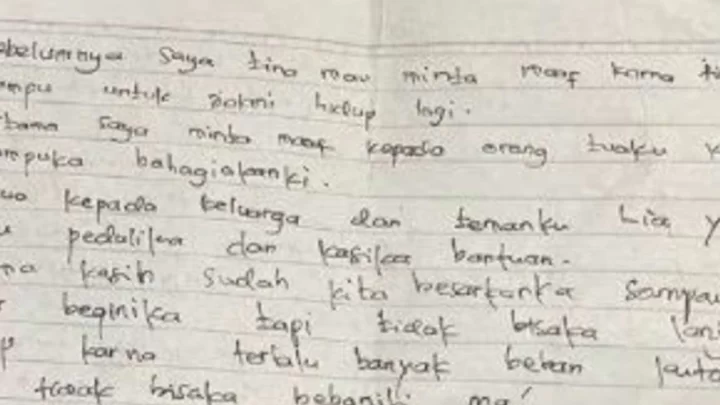 belumnya saya tina mau minta maaf karna
mpu untuk hidup lagi.
tama saya minta maaf kepada orang tuaku y
mpuka bahagiakanki.
ua kepada keluarga dan temanku Lia y
pedulika dan kasika bantuan.
ma kasih sudah kita besarkanka sampai
beginika tapi tidak bisaka lan
p karna terlalu banyak beban
tidak bisaka bebaniki ma'